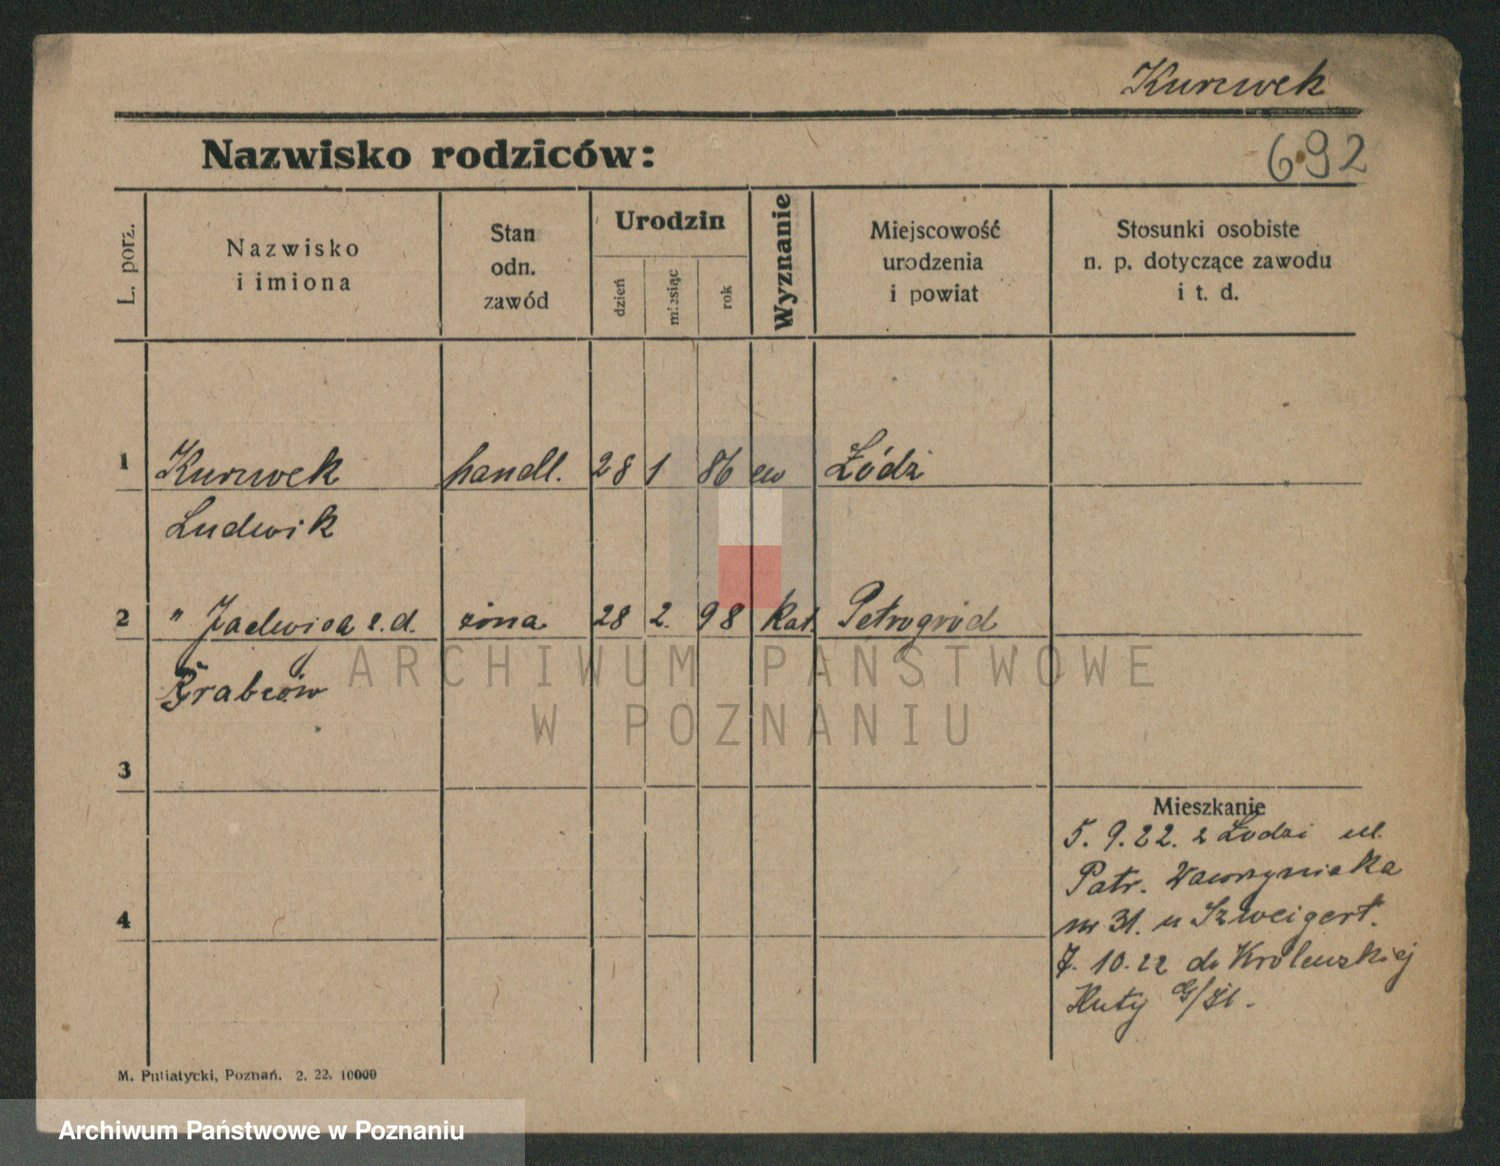 Kurzwek
692
Nazwisko rodziców:
L. porz.
Nazwisko
i imiona
Stan
odn.
zawód
Urodzin
dzień
miesiąc
rok
Wyznanie
Miejscowość
urodzenia
i powiat
Stosunki osobiste
n. p. dotyczące zawodu
i t. d.
1 Kurzwek handl. 28 1 86 ew Łódź
Ludwik
2 " Jadwiga z.d. żona 28 2. 98 kat. Petrogród
Grabców
ARCHIWUM PAŃSTWOWE
W POZNANIU
3
Mieszkanie
5. 9. 22. z Łodzi ul.
Patr. Wawrzyniaka
nr 31. u Szweigert.
4
7. 10. 22 do Krolewskiej
Huty G/Śl.
M. Putiatycki, Poznań. 2. 22. 10000
Archiwum Państwowe w Poznaniu